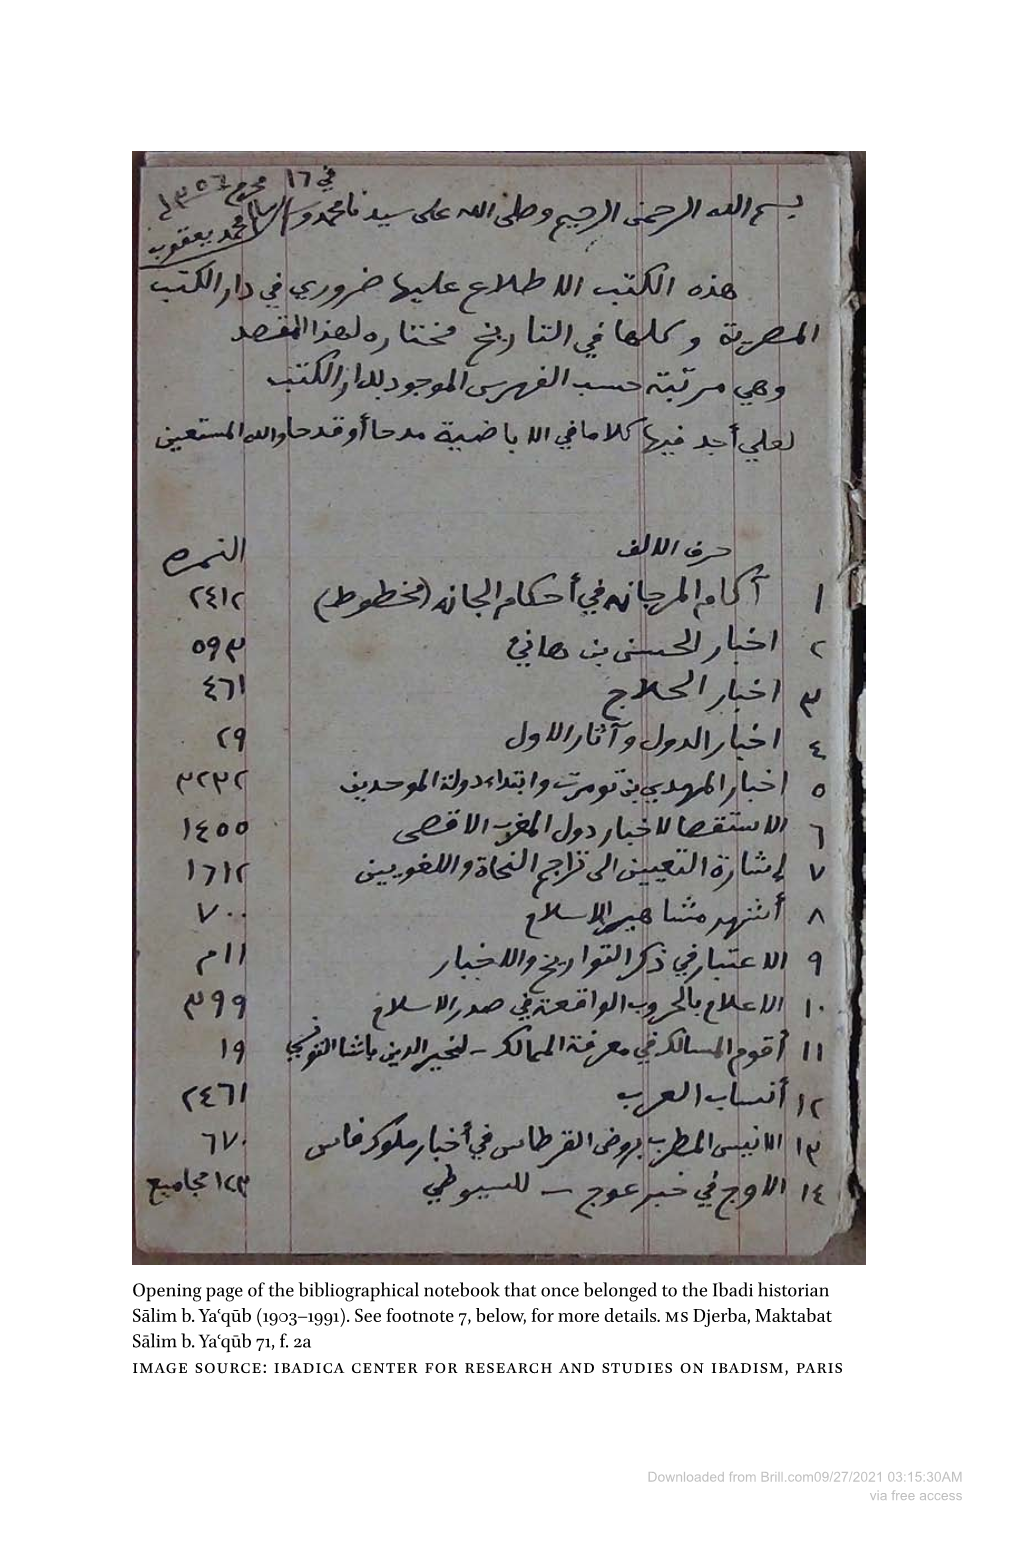 في ١٦ محرم ١٣٥٦
بسم الله الرحمن الرحيم وصلى الله على سيدنا محمد وسلم
سالم محمد يعقوب
هذه الكتب الاطلاع عليها ضروري في دار الكتب
المصرية وكلها في التاريخ مختاره لهذا المقصد
وهي مرتبة حسب الفهرس الموجود بدار الكتب
لعلي أجد فيها كلاما في الاباضية مدحا أو قدحا والله المستعين
حرف الالف النمره
١ آكام المرجان في أحكام الجان (مخطوط) ٢٤١٢
٢ اخبار الحسن بن هاني ٥٩٣
٣ اخبار الحلاج ٤٦١
٤ اخبار الدول وآثار الاول ٢٩
٥ اخبار المهدي بن تومرت وابتداء دولة الموحدين ٣٢٣٢
٦ الاستقصا لاخبار دول المغرب الاقصى ١٤٥٥
٧ إشارة التعيين الى تراجم النحاة واللغويين ١٦١٢
٨ أشهر مشاهير الاسلام ٧٠٠
٩ الاعتبار في ذكر التواريخ والاخبار ١١م
١٠ الاعلام بالحروب الواقعة في صدر الاسلام ٣٩٩
١١ أقوم المسالك في معرفة الممالك - لخير الدين باشا التونسي ١٩
١٢ أنساب العرب ٢٤٦١
١٣ الانيس المطرب بروض القرطاس في أخبار ملوك فاس ٦٧٠
١٤ الاوج في خبر عوج - للسيوطي ١٢٣ مجاميع
Opening page of the bibliographical notebook that once belonged to the Ibadi historian
Sālim b. Yaʿqūb (1903–1991). See footnote 7, below, for more details. MS Djerba, Maktabat
Sālim b. Yaʿqūb 71, f. 2a
IMAGE SOURCE: IBADICA CENTER FOR RESEARCH AND STUDIES ON IBADISM, PARIS
Downloaded from Brill.com09/27/2021 03:15:30AM
via free access